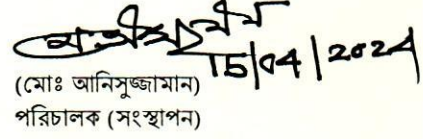 15/04/2024
(মোঃ আনিসুজ্জামান)
পরিচালক (সংস্থাপন)